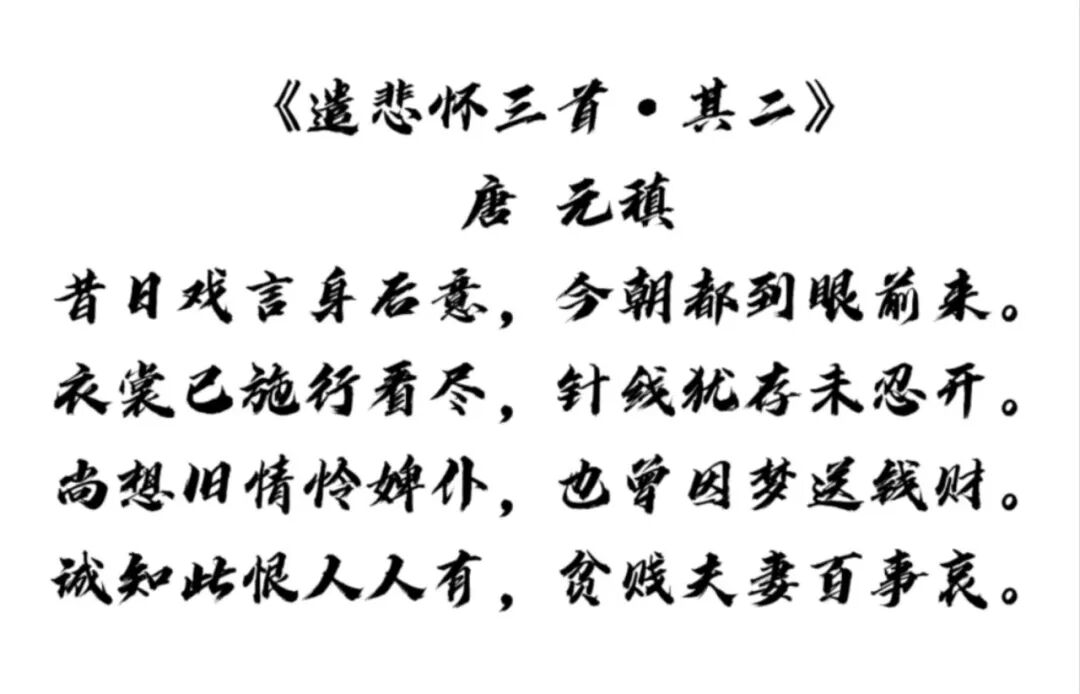 《遣悲怀三首·其二》
唐 元稹
昔日戏言身后意，今朝都到眼前来。
衣裳已施行看尽，针线犹存未忍开。
尚想旧情怜婢仆，也曾因梦送钱财。
诚知此恨人人有，贫贱夫妻百事哀。